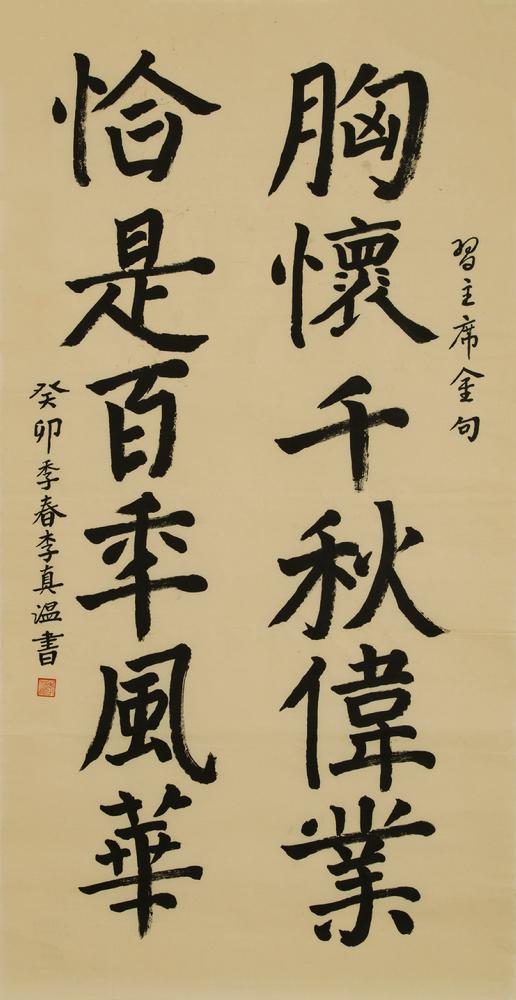 習主席金句
胸懷千秋偉業
恰是百年風華
癸卯季春李真溫書